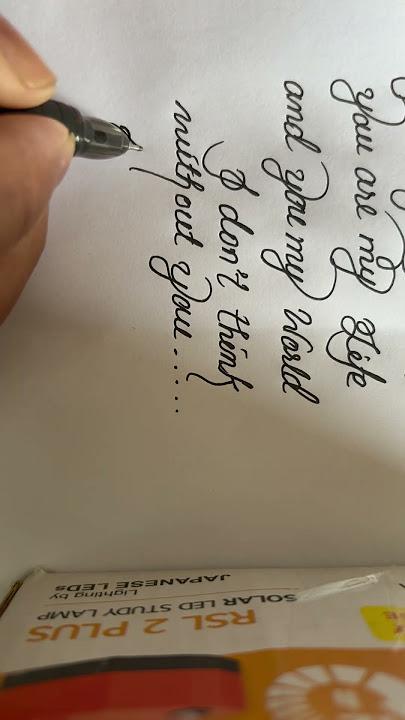 you are my Life
and you my World
I don't think
without you......
RSL 2 PLUS
SOLAR LED STUDY LAMP
Lighting by
JAPANESE LEDs